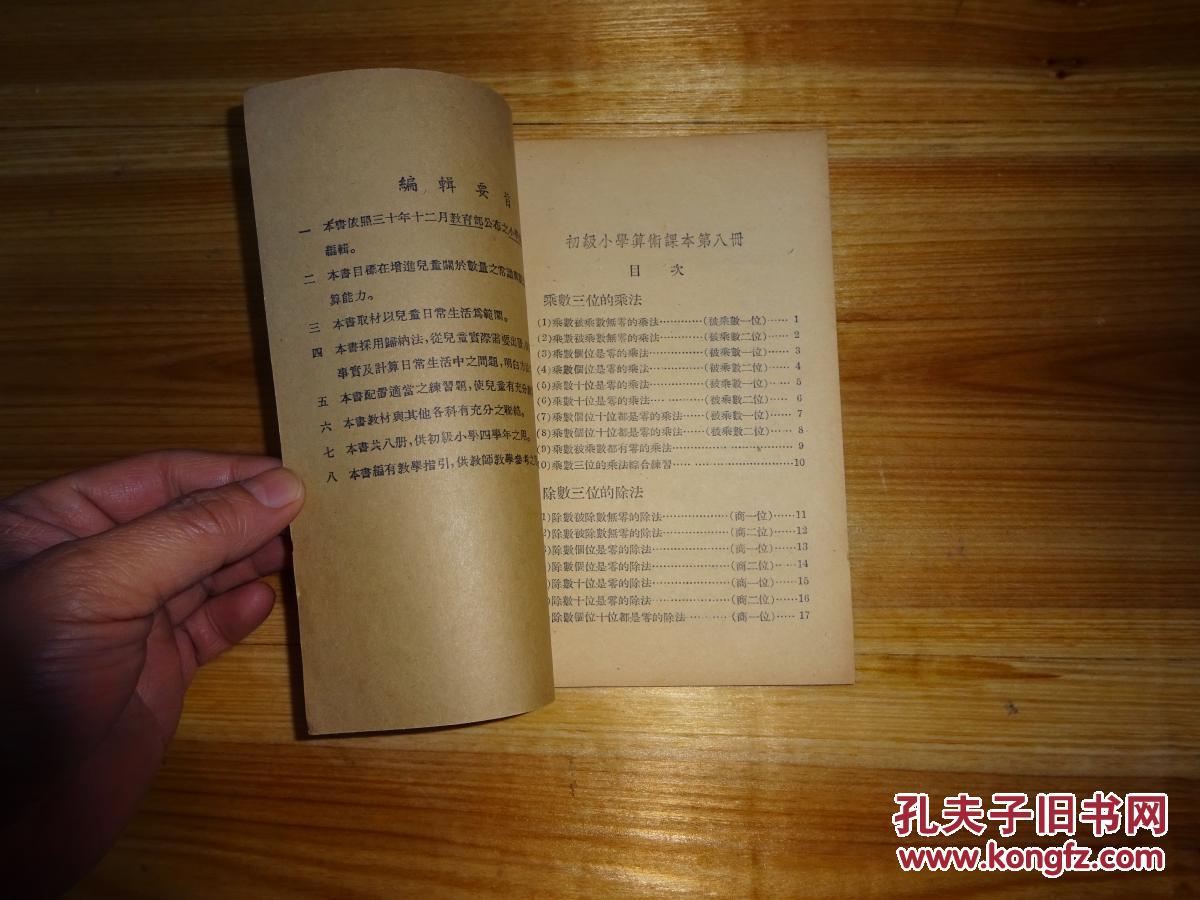 編輯要旨
一 本書依照三十年十二月教育部公布之小
編輯。
二 本書目標在增進兒童關於數量之常識
算能力。
三 本書取材以兒童日常生活爲範圍。
四 本書採用歸納法，從兒童實際需要出發，
事實及計算日常生活中之問題，明白方
五 本書配置適當之練習題，使兒童有充分
六 本書教材與其他各科有充分之聯絡。
七 本書共八册，供初級小學四學年之用。
八 本書編有教學指引，供教師教學參考之
初級小學算術課本第八冊
目 次
乘數三位的乘法
(1)乘數被乘數無零的乘法…………(被乘數一位)…… 1
(2)乘數被乘數無零的乘法…………(被乘數二位)…… 2
(3)乘數個位是零的乘法……………(被乘數一位)…… 3
(4)乘數個位是零的乘法……………(被乘數二位)…… 4
(5)乘數十位是零的乘法……………(被乘數一位)…… 5
(6)乘數十位是零的乘法……………(被乘數二位)…… 6
(7)乘數個位十位都是零的乘法……(被乘數一位)…… 7
(8)乘數個位十位都是零的乘法……(被乘數二位)…… 8
(9)乘數被乘數都有零的乘法………………………… 9
0)乘數三位的乘法綜合練習…………………………10
除數三位的除法
1)除數被除數無零的除法………………(商一位)……11
2)除數被除數無零的除法………………(商二位)……12
3)除數個位是零的除法…………………(商一位)……13
)除數個位是零的除法…………………(商二位)……14
)除數十位是零的除法…………………(商一位)……15
)除數十位是零的除法…………………(商二位)……16
除數個位十位都是零的除法…………(商一位)……17
孔夫子旧书网
www.kongfz.com